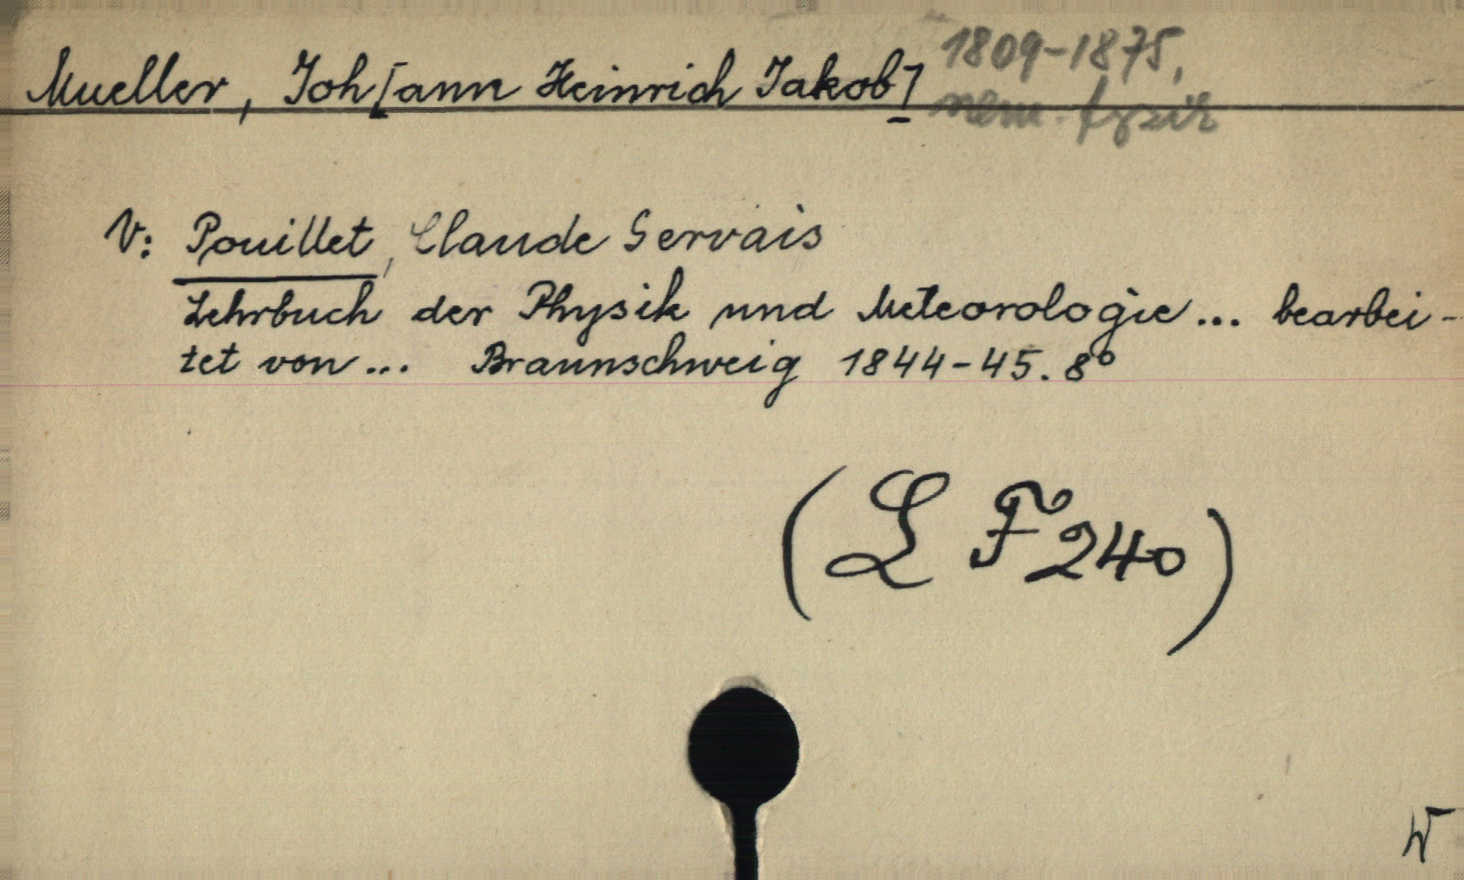 Mueller, Joh[ann Heinrich Jakob] 1809-1875,
něm. fyzik
V: Pouillet, Claude Gervais
Lehrbuch der Physik und Meteorologie... bearbei-
tet von... Braunschweig 1844-45. 8°
(L F 240)
W